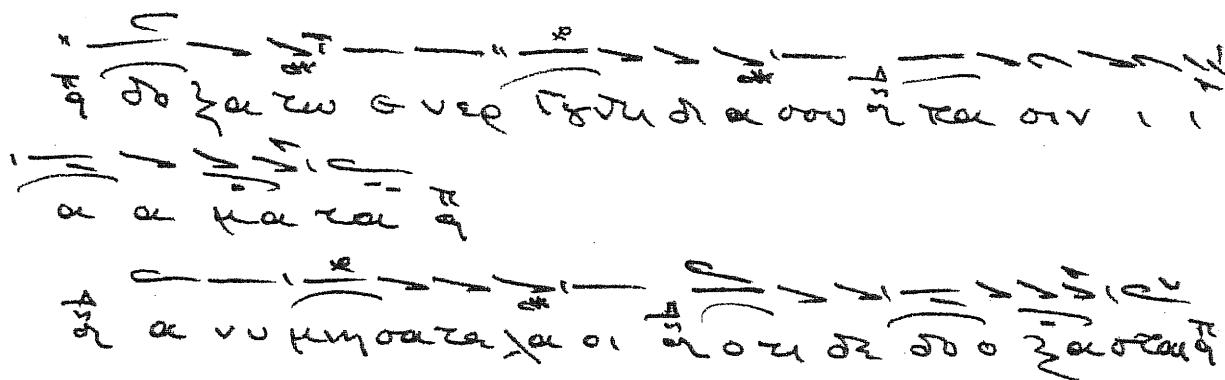 δο ξα τω ε νερ γȣντι δι α σου πα σιν ι ι
α α μα τα
α νυ μνησατε λα οι ο τι δε δο ο ξασται